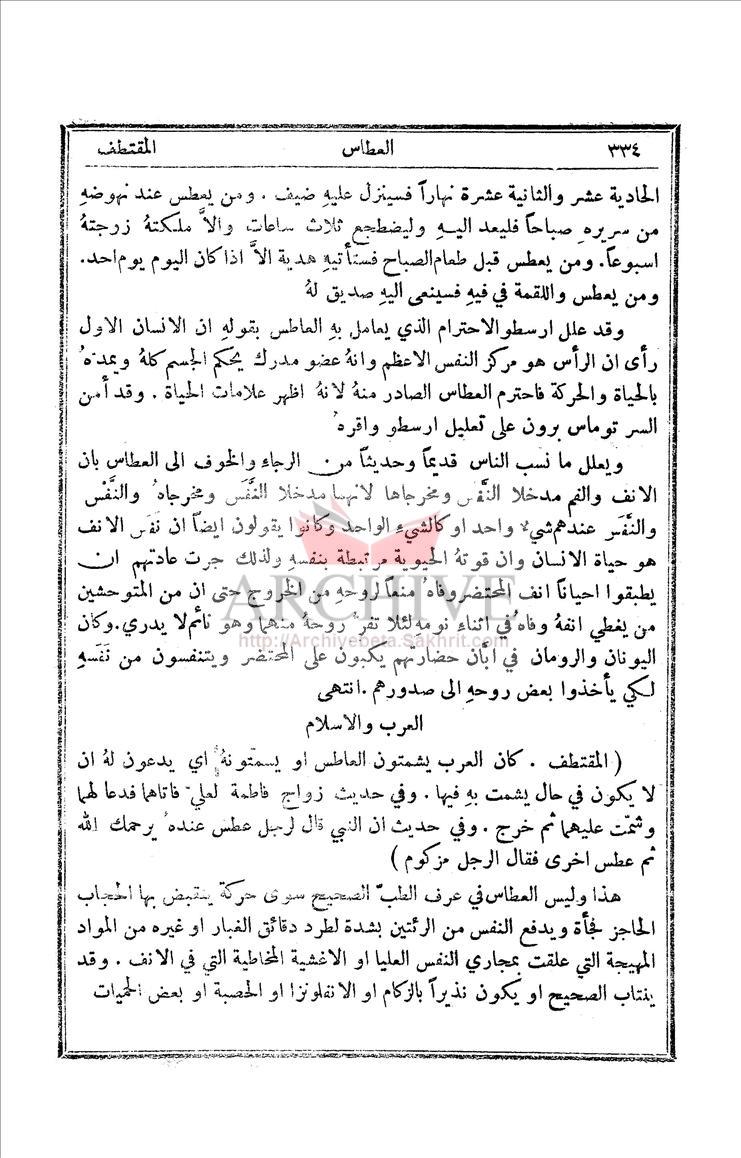 ٣٣٤ العطاس المقتطف
الحادية عشر والثانية عشرة نهاراً فسينزل عليهِ ضيف . ومن يعطس عند نهوضهِ
من سريرهِ صباحاً فليعد اليـهِ وليضطجع ثلاث ساعات والاَّ ملكتهُ زوجتهُ
اسبوعاً. ومن يعطس قبل طعام الصباح فستأتيهِ هدية الاَّ اذا كان اليوم يوم احد.
ومن يعطس واللقمة في فيهِ فسينعى اليهِ صديق لهُ
وقد علل ارسطو الاحترام الذي يعامل بهِ العاطس بقولهِ ان الانسان الاول
رأى ان الرأس هو مركز النفس الاعظم وانهُ عضو مدرك يحكم الجسم كلهُ ويمدّهُ
بالحياة والحركة فاحترم العطاس الصادر منهُ لانهُ اظهر علامات الحياة . وقد أمن
السر توماس برون على تعليل ارسطو واقرهُ
ويعلل ما نسب الناس قديماً وحديثاً من الرجاء والخوف الى العطاس بان
الانف والفم مدخلا النَّفَس ومخرجاها لانهما مدخلا النَّفَس ومخرجاهُ والنَّفْس
والنَّفَس عندهم شيءٌ واحد او كالشيء الواحد وكانوا يقولون ايضاً ان نَفَس الانف
هو حياة الانسان وان قوتهُ الحيوية مرتبطة بنفسهِ ولذلك جرت عادتهم ان
يطبقوا احياناً انف المحتضر وفاهُ منعاً لروحهِ من الخروج حتى ان من المتوحشين
من يغطي انفهُ وفاهُ في اثناء نومهِ لئلا تفرّ روحهُ منهما وهو نائم لا يدري. وكان
اليونان والرومان في ابَّان حضارتهم يكبون على المحتضر ويتنفسون من نَفَسهِ
لكي يأخذوا بعض روحهِ الى صدورهم . انتهى
العرب والاسلام
( المقتطف . كان العرب يشمتون العاطس او يسمتونهُ اي يدعون لهُ ان
لا يكون في حال يشمت بهِ فيها . وفي حديث زواج فاطمة لعليّ فاتاهما فدعا لهما
وشمَّت عليهما ثم خرج . وفي حديث ان النبي قال لرجل عطس عندهُ يرحمك الله
ثم عطس اخرى فقال الرجل مزكوم )
هذا وليس العطاس في عرف الطبّ الصحيح سوى حركة ينقبض بها الحجاب
الحاجز فجأة ويدفع النفس من الرئتين بشدة لطرد دقائق الغبار او غيره من المواد
المهيجة التي علقت بمجاري النفس العليا او الاغشية المخاطية التي في الانف . وقد
ينتاب الصحيح او يكون نذيراً بالزكام او الانفلونزا او الحصبة او بعض الحميات
ARCHIVE
http://Archivebeta.Sakhrit.com